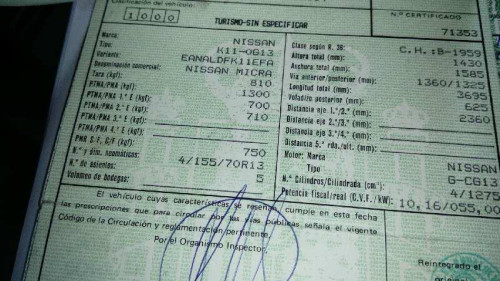 Clasificación del vehículo:
1000
TURISMO-SIN ESPECIFICAR
N.º CERTIFICADO
71353
Marca: NISSAN
Tipo: K11-0G13
Variante: EANALDFK11EFA
Denominación comercial: NISSAN MICRA
Tara (kgf): 810
PTMA/PMA (kgf): 1300
PTMA/PMA 1.º E (kgf): 700
PTMA/PMA 2.º E (kgf): 710
PTMA/PMA 3.º E (kgf):
PTMA/PMA 4.º E (kgf):
PMR S/F, C/F (kgf): 750
N.º y dim. neumáticos: 4/155/70R13
N.º de asientos: 5
Volumen de bodegas:
Clase según R. 36: C.H.:B-1959
Altura total (mm): 1430
Anchura total (mm): 1585
Vía anterior/posterior (mm): 1360/1325
Longitud total (mm): 3695
Voladizo posterior (mm): 625
Distancia eje 1.º/2.º (mm): 2360
Distancia eje 2.º/3.º (mm):
Distancia eje 3.º/4.º (mm):
Distancia 5.ª rda./ult. (mm):
Motor: Marca NISSAN
Tipo G-CG13
N.º Cilindros/Cilindrada (cm³): 4/1275
Potencia fiscal/real (C.V.F./kW): 10,16/055,00
El vehículo cuyas características se reseñan, cumple en esta fecha
las prescripciones que para circular por las vías públicas señala el vigente
Código de la Circulación y reglamentación pertinente.
Por el Organismo Inspector,
Reintegrado el
original